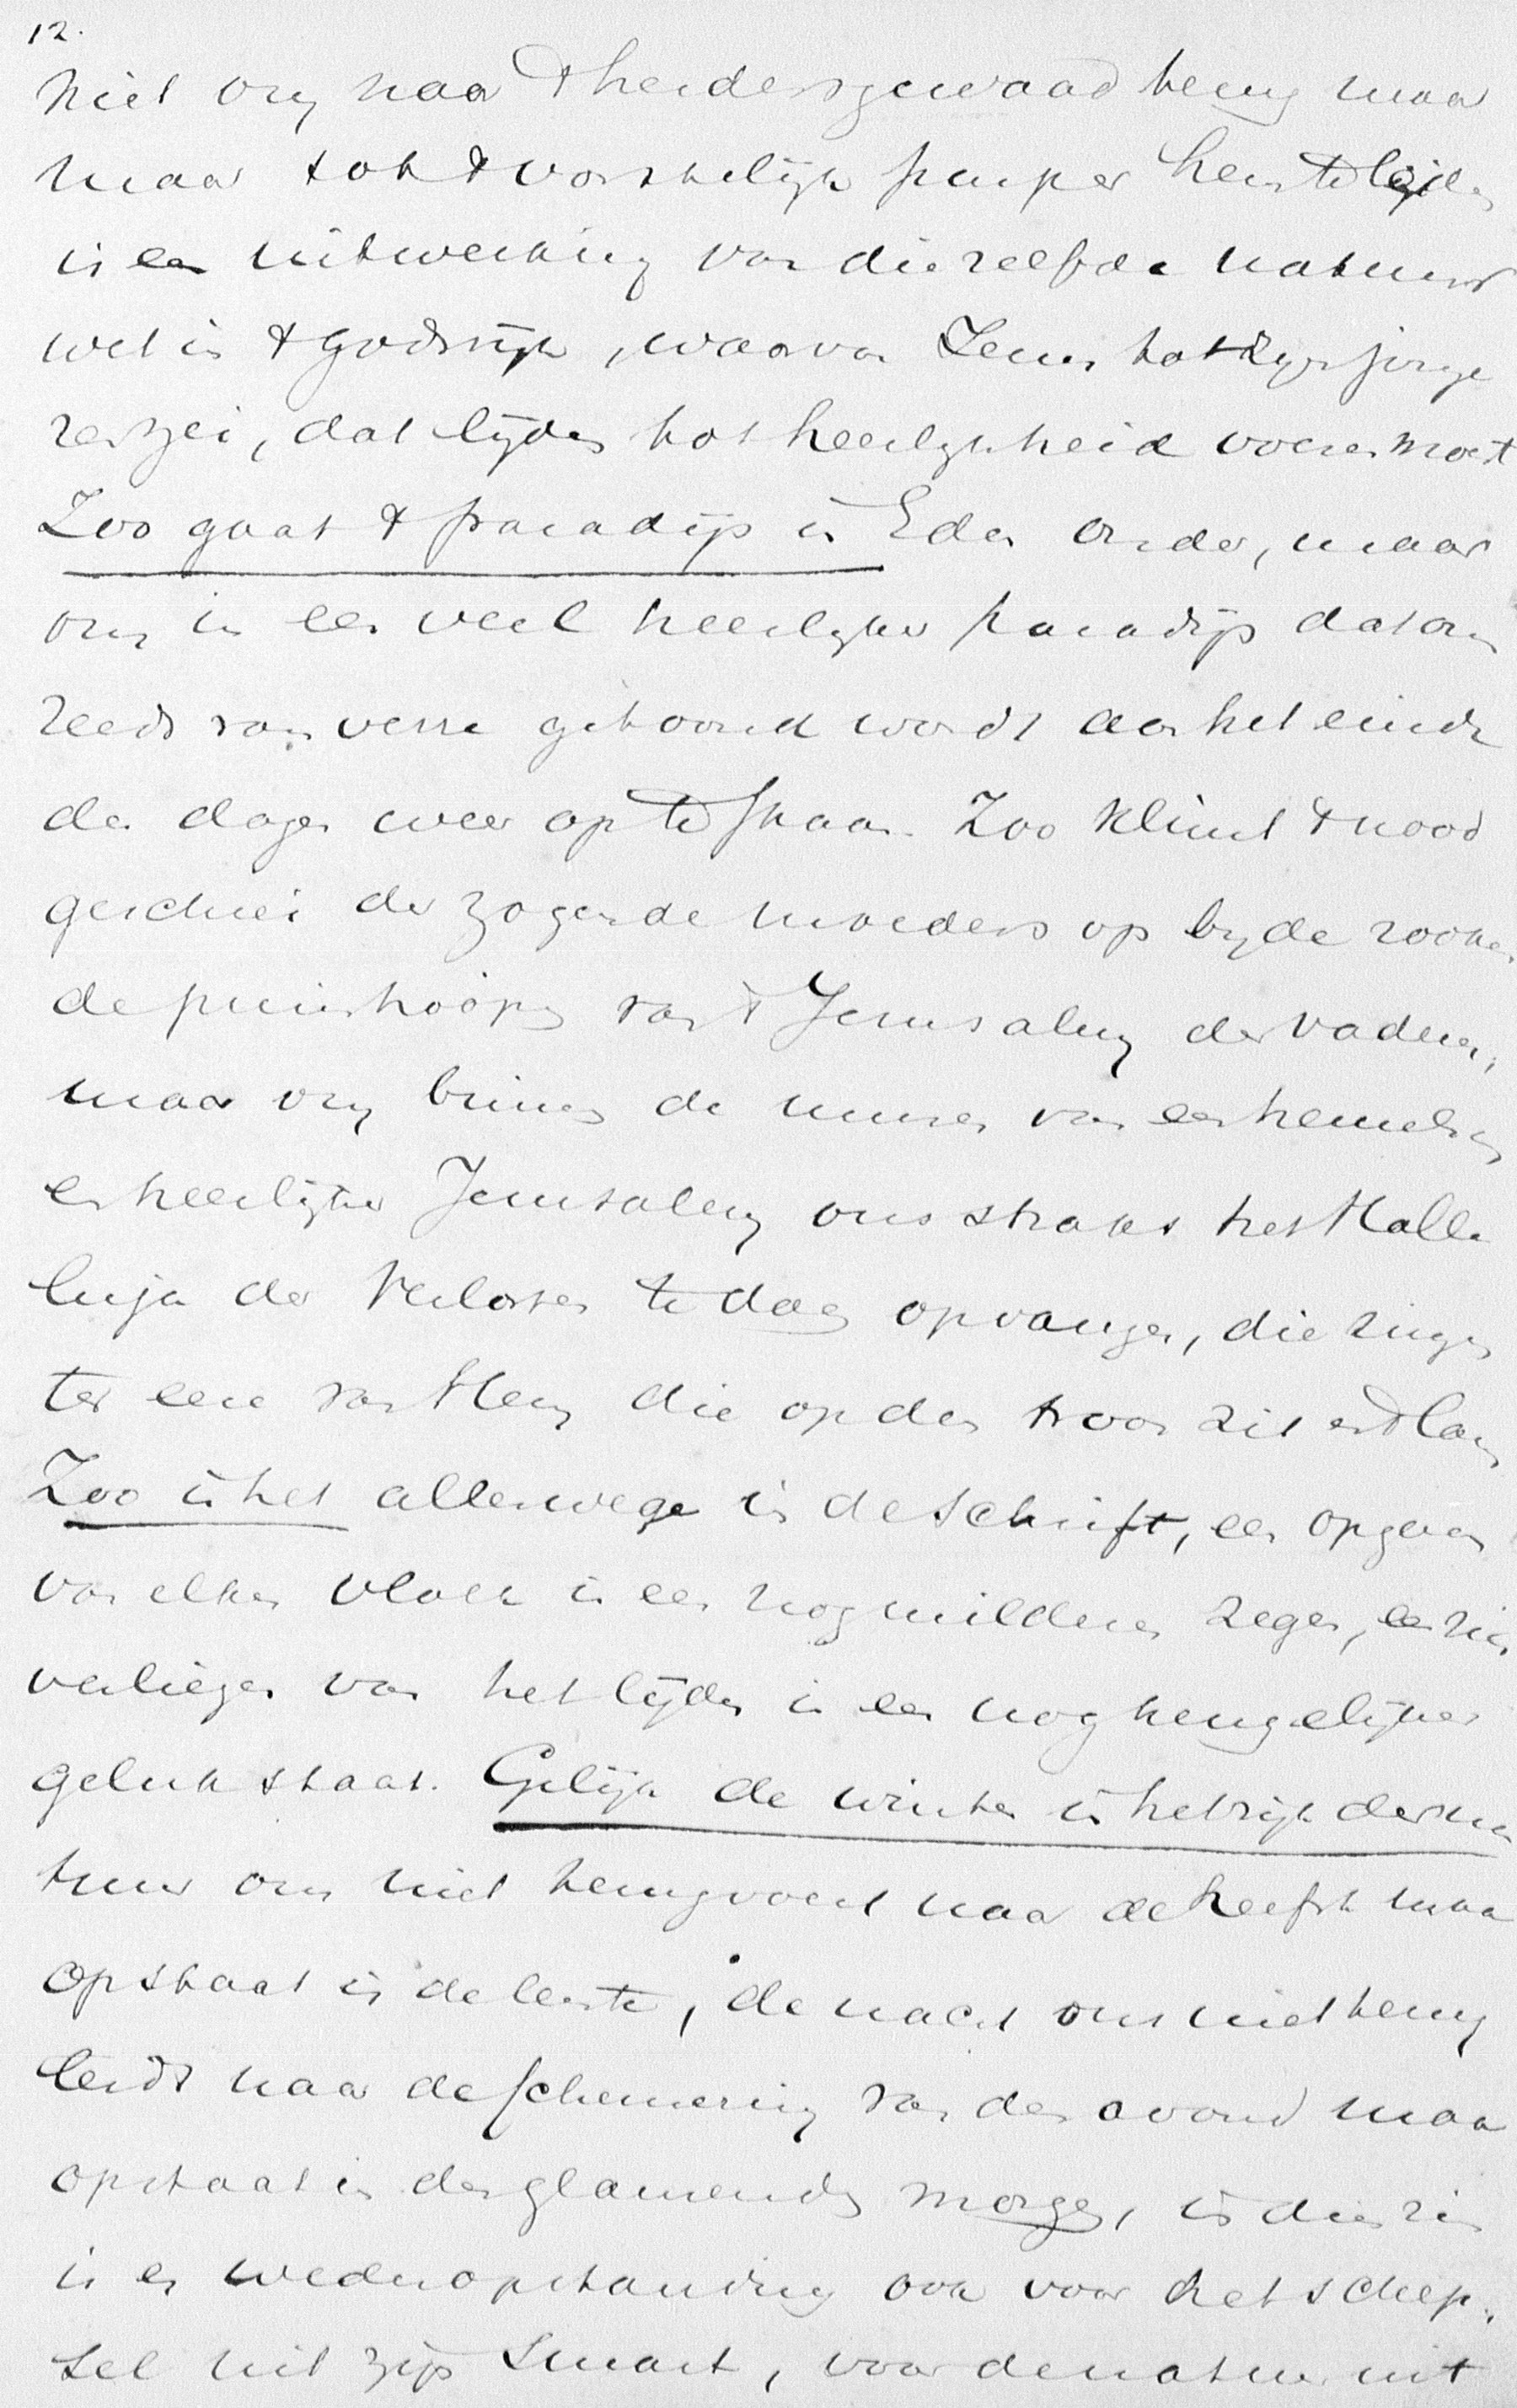 12.
niet om naar 't herdersgewaad terug maar
maar tot 't vorstelijk purper heen te leiden
is een uitwerking van diezelfde natuur
wet in 't Godsrijk, waarvan Jezus tot zijn jonge
ren zei, dat lijden tot heerlijkheid voeren moet
Zoo gaat 't paradijs in Eden onder, maar
om in een veel heerlijker paradijs dat ons
reeds van verre getoond wordt aan het einde
der dagen weer op te staan. Zoo klimt 't nood
geschrei der zogende moeders op bij de rooken
de puinhoopen van 't Jerusalem der vaderen,
maar om binnen de muren van een hemelsch
en heerlijker Jerusalem ons straks het Halle
luja der Verlosten te doen opvangen, die zingen
ter eere van Hem die op den troon zit en 't Lam
Zoo is het allerwege in de Schrift, een opgaan
van elken vloek in een nog milderen zegen, een zich
verliezen van het lijden in een nog heugelijker
gelukstaat. Gelijk de winter in het rijk der na
tuur ons niet terugvoert naar de herfst maar
opstaat in de lente, de nacht ons niet terug
leidt naar de schemering van den avond maar
opstaat in den glanzenden morgen, in dien zin
is er wederopstanding ook voor het schep-
sel uit zijn smart, voor de natuur uit